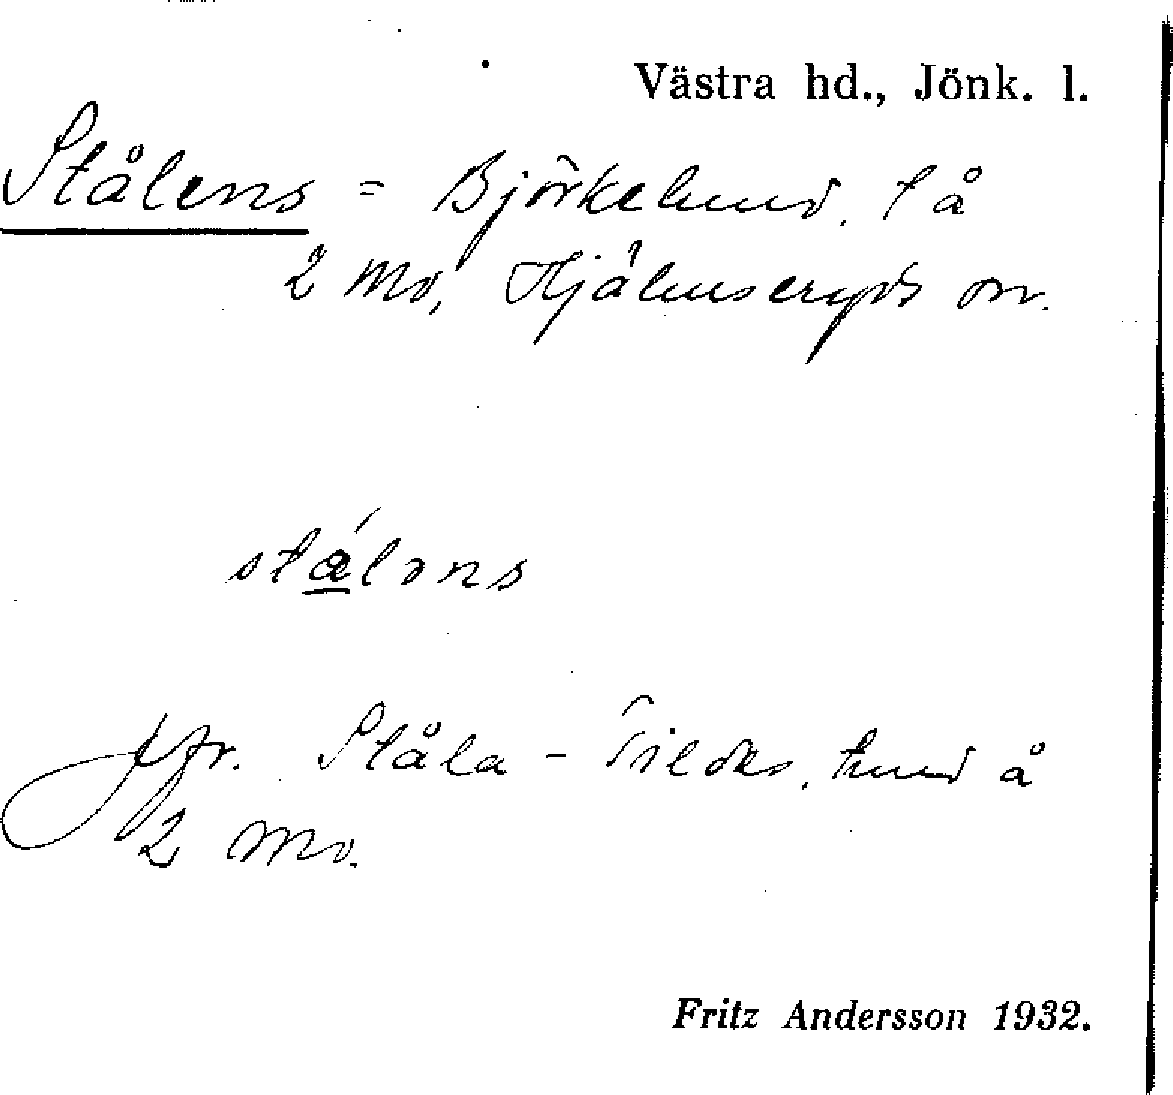 Västra hd., Jönk. l.
Stålens = Björkelund, l å
2 Mo, Hjälmseryds sn.
stál​əns
Jfr. Ståla - Tildas, lund å
2 Mo.
Fritz Andersson 1932.